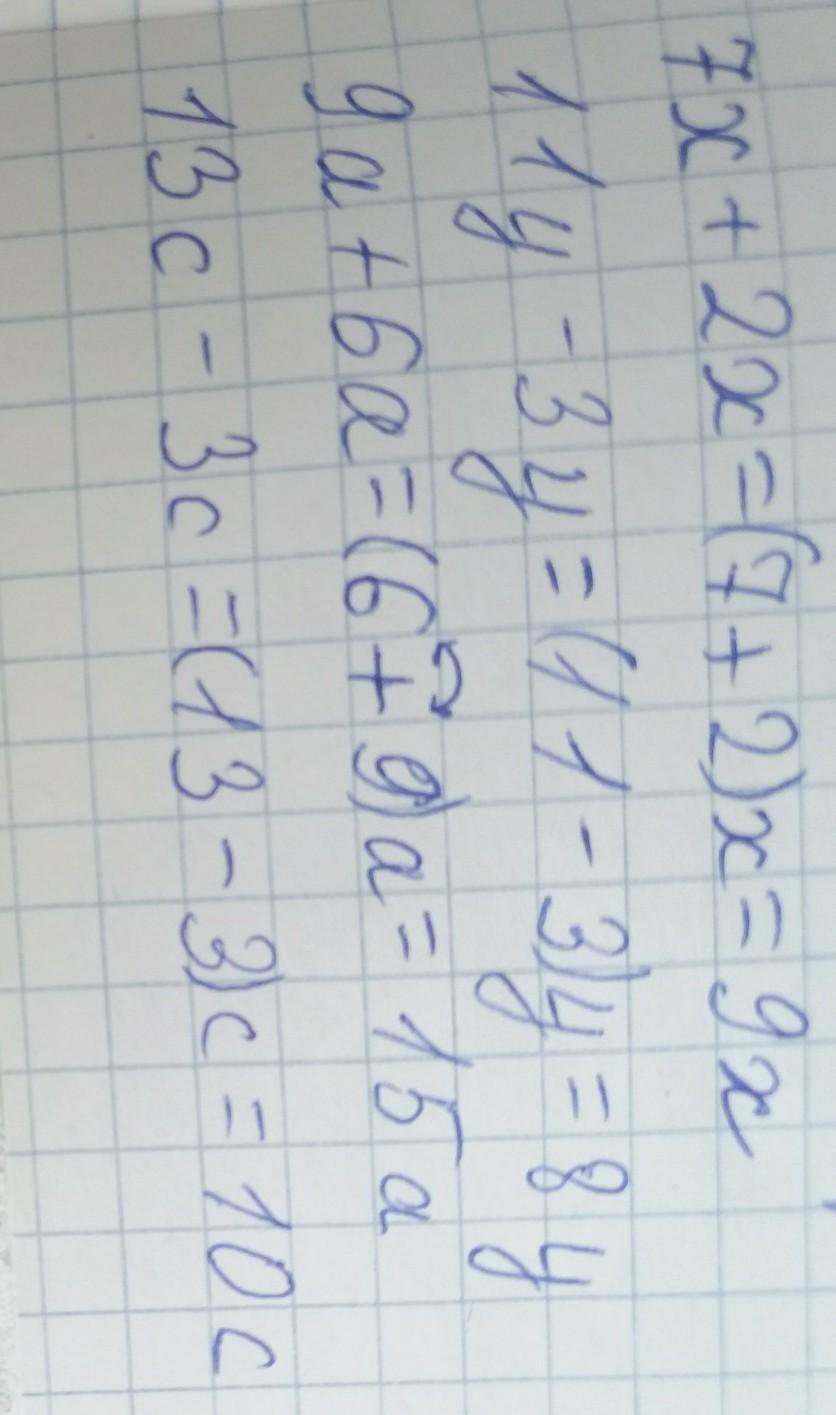 7x + 2x = (7 + 2)x = 9x
11y - 3y = (11 - 3)y = 8y
9a + 6a = (6 + 9)a = 15a
13c - 3c = (13 - 3)c = 10c